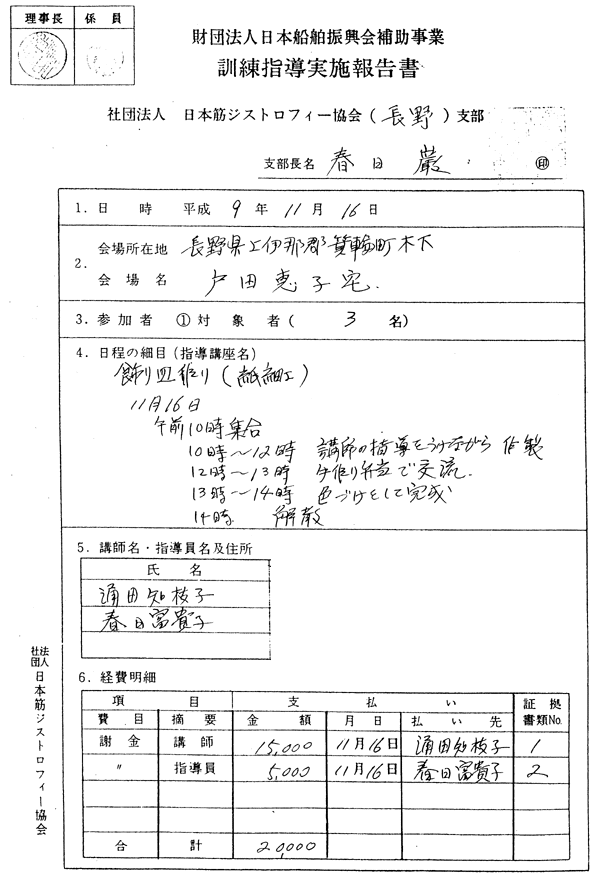 理事長 係員
財団法人日本船舶振興会補助事業
訓練指導実施報告書
社団法人 日本筋ジストロフィー協会(長野)支部
支部長名 春日 巌 ㊞
1. 日 時 平成 9 年 11 月 16 日
2. 会場所在地 長野県上伊那郡箕輪町木下
会場名 戸田恵子宅.
3. 参加者 ①対象者( 3 名)
4. 日程の細目(指導講座名)
飾り皿作り(紙細工)
11月16日
午前10時集合
10時~12時 講師の指導をうけながら作製
12時~13時 手作り弁当で交流.
13時~14時 色づけをして完成
14時 解散
5. 講師名・指導員名及住所
氏名
涌田知枝子
春日富貴子
6. 経費明細
項目 支払い 証拠書類No.
費目 摘要 金額 月日 払い先
謝金 講師 15,000 11月16日 涌田知枝子 1
〃 指導員 5,000 11月16日 春日富貴子 2
合計 20,000
社団法人日本筋ジストロフィー協会